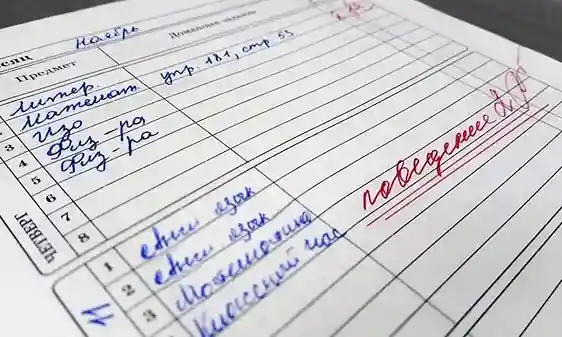 Ноябрь
Предмет Домашнее задание
литер.
Математ упр. 181, стр 55
3 Изо
4 Физ-ра
5 Физ-ра
6
7
8
поведение 2
ЧЕТВЕРГ
1 Анг язык
2 Анг язык
3 Математика
Классный час
11